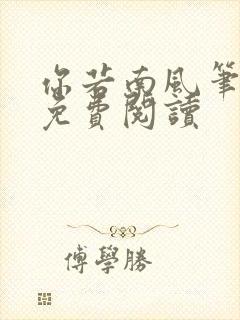 你若南風筆
免費閱讀
傅學勝